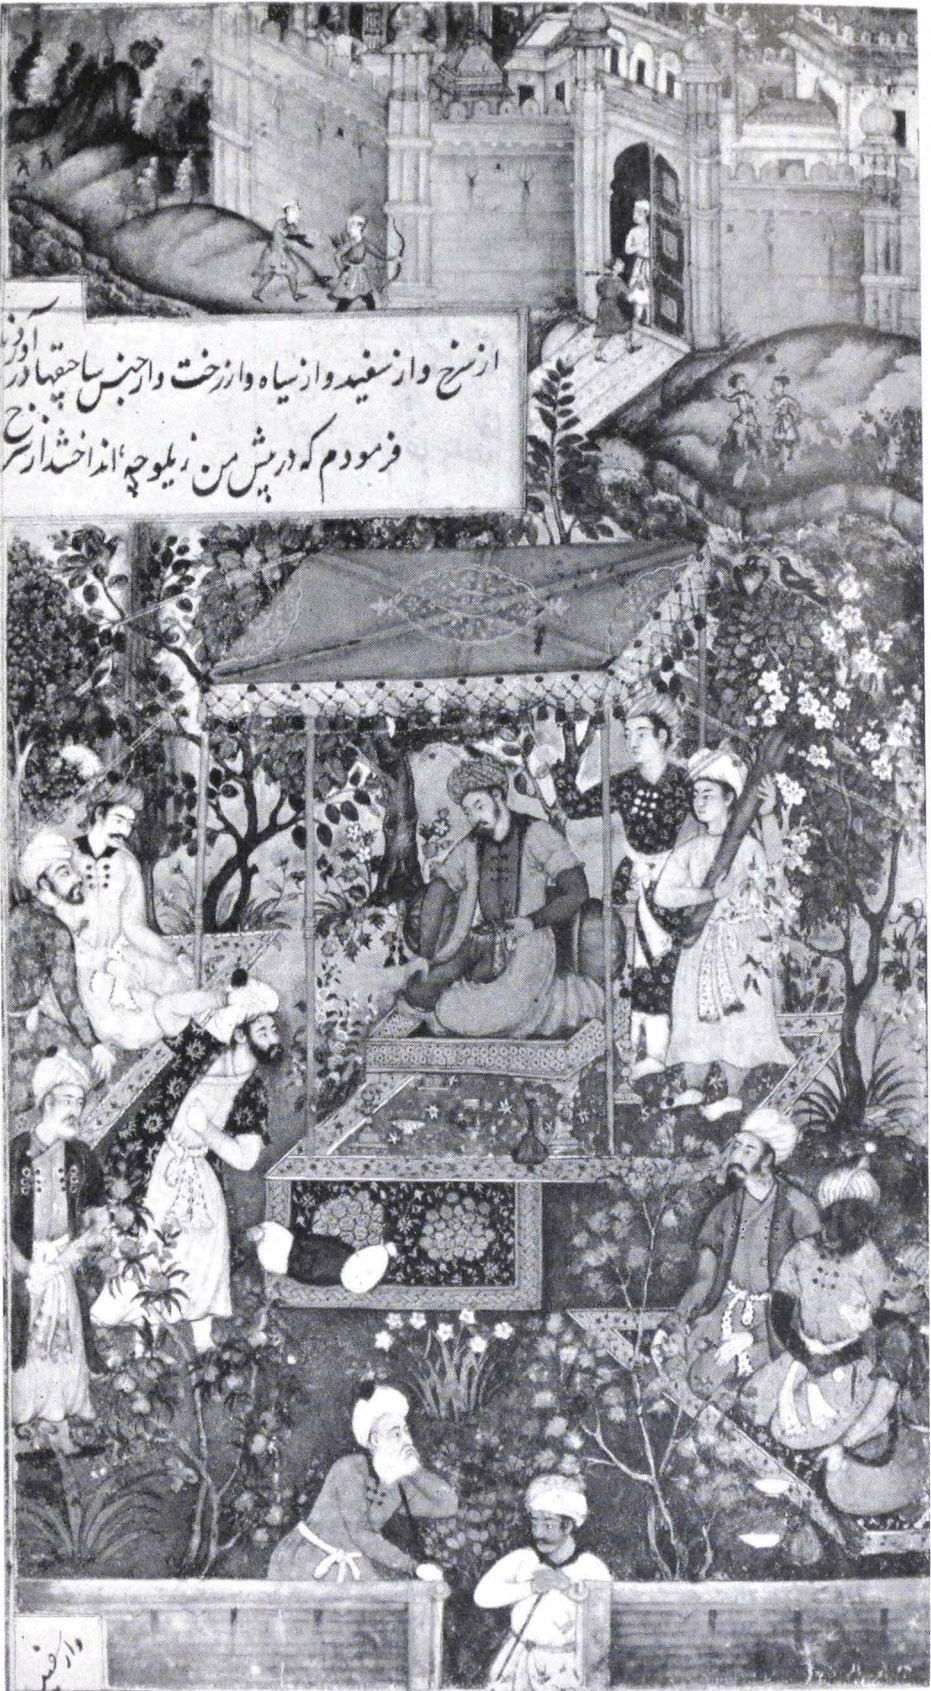 از سرخ و از سفید و از سیاه و از رخت و از جنس ساچقها آوردند
فرمودم که در پیش من زیلوچه انداختند از سرخ
و از سفید